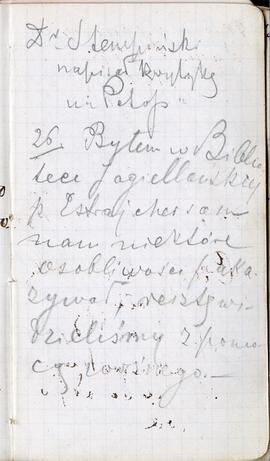 Dr Stempiński
napisał krytykę
n: "Pelop"
26. Byłem w Biblio
tece Jagiellońskiej
p. Estrajcher sam
nam niektóre
osobliwości poka
zywał, resztę wi
dzieliśmy z pomo
cą woźnego.—